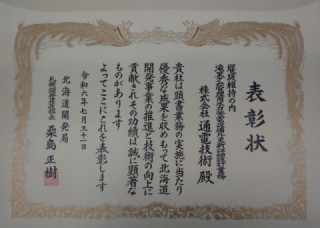 表彰状
堰堤維持の内
株式会社 通電技術 殿
貴社は頭書業務の実施に当たり
優秀な成果を収めもって北海道
開発事業の推進と技術の向上に
貢献されその功績は誠に顕著な
ものがあります
よってここにこれを表彰します
令和六年七月三十一日
北海道開発局
桑島正樹